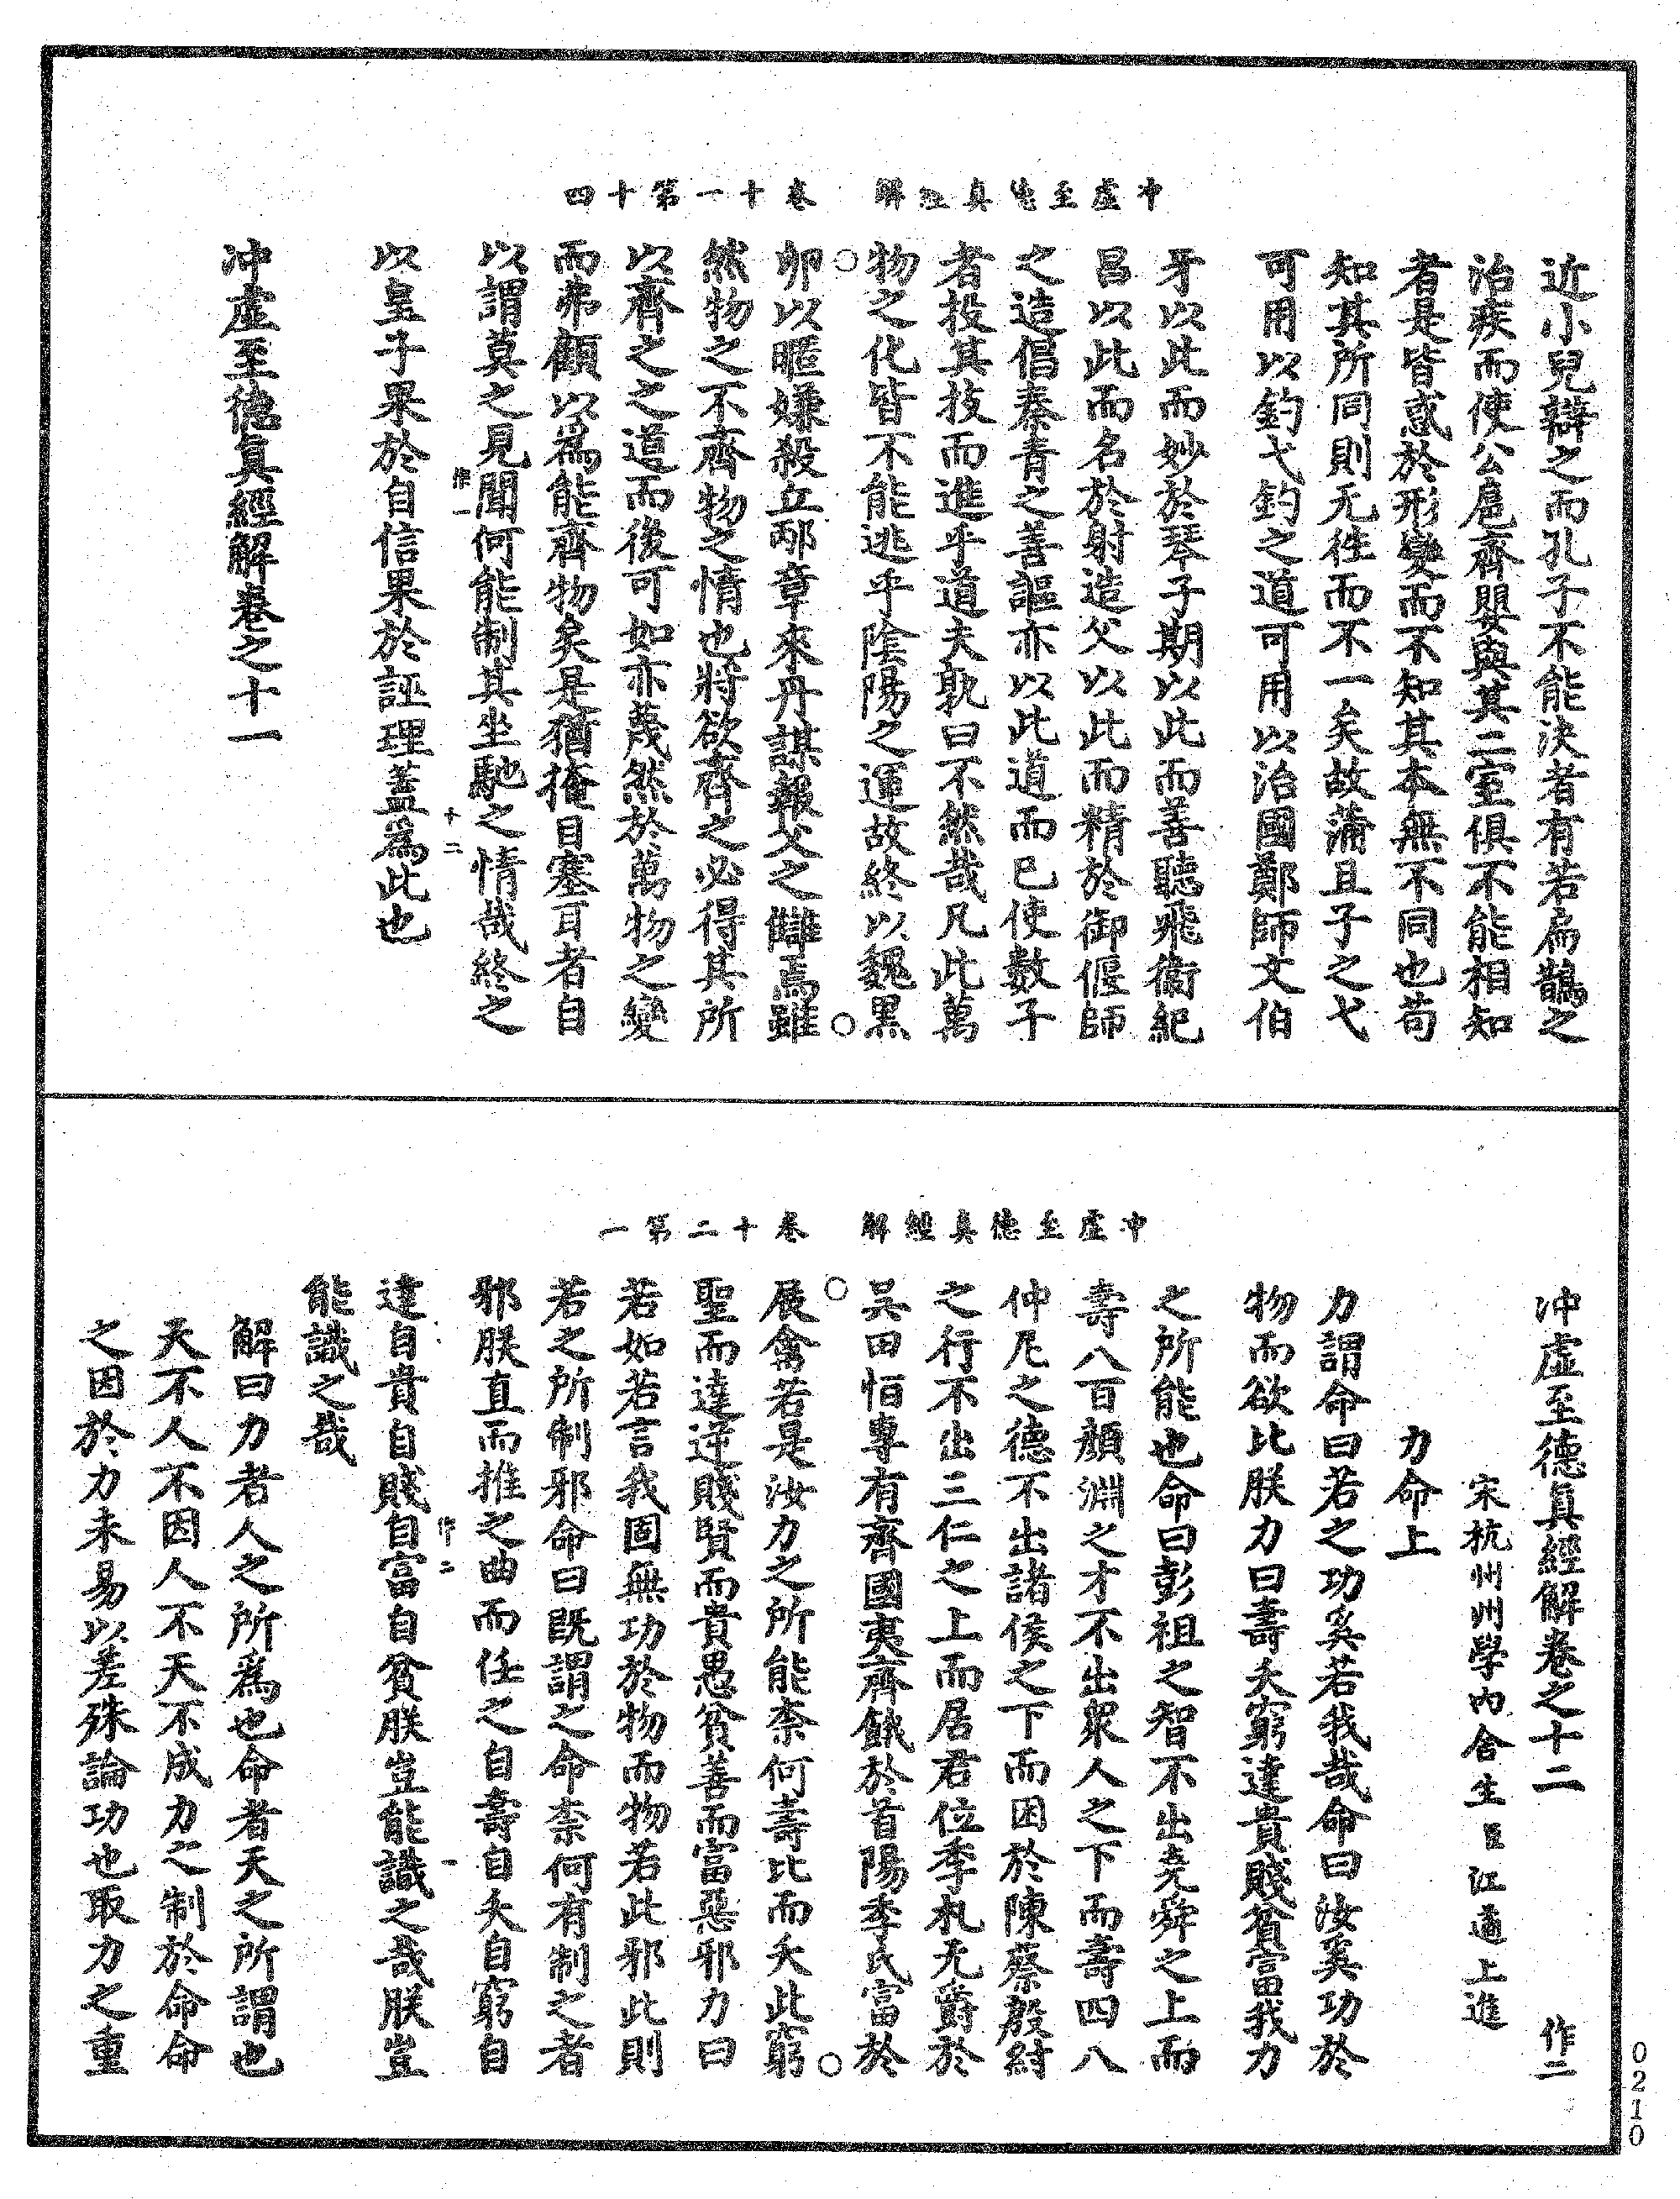 冲虛至德真經解　卷十一第十四
近小兒辯之而孔子不能決者有若扁鵲之
治疾而使公扈齊嬰與其二室俱不能相知
者是皆惑於形變而不知其本無不同也苟
知其所同則无徃而不一矣故蒲且子之弋
可用以釣弋釣之道可用以治國鄭師文伯
牙以此而妙於琴子期以此而善聽飛衛紀
昌以此而名於射造父以此而精於御偃師
之造倡秦青之善謳亦以此道而已使數子
者投其技而進乎道夫孰曰不然哉凡此萬
物之化皆不能逃乎陰陽之運故終以魏黑
卵以暱嫌殺丘邴章來丹謀報父之讎焉雖
然物之不齊物之情也將欲齊之必得其所
以齊之之道而後可如亦蔑然於萬物之變
而弗顧以爲能齊物矣是猶掩目塞耳者自
以謂莫之見聞何能制其坐馳之情哉終之
作一　十二
以皇子果於自信果於誣理蓋爲此也
冲虛至德真經解卷之十一
冲虛至德真經解　卷十二第一
冲虛至德真經解卷之十二　作二
宋杭州州學內舍生臣江遹上進
力命上
力謂命曰若之功奚若我哉命曰汝奚功於
物而欲比朕力曰壽夭窮達貴賤貧富我力
之所能也命曰彭祖之智不出堯舜之上而
壽八百顏淵之才不出眾人之下而壽四八
仲尼之德不出諸侯之下而困於陳蔡殷紂
之行不出三仁之上而居君位季札无爵於
吳田恒專有齊國夷齊餓於首陽季氏富於
展禽若是汝力之所能柰何壽比而夭此窮
聖而達逆賤賢而貴愚貧善而富惡邪力曰
若如若言我固無功於物而物若此邪此則
若之所制邪命曰既謂之命柰何有制之者
邪朕直而推之曲而任之自壽自夭自窮自
作二　一
達自貴自賤自富自貧朕豈能識之哉朕豈
能識之哉
解曰力者人之所爲也命者天之所謂也
天不人不因人不天不成力之制於命命
之因於力未易以差殊論功也取力之重
0210